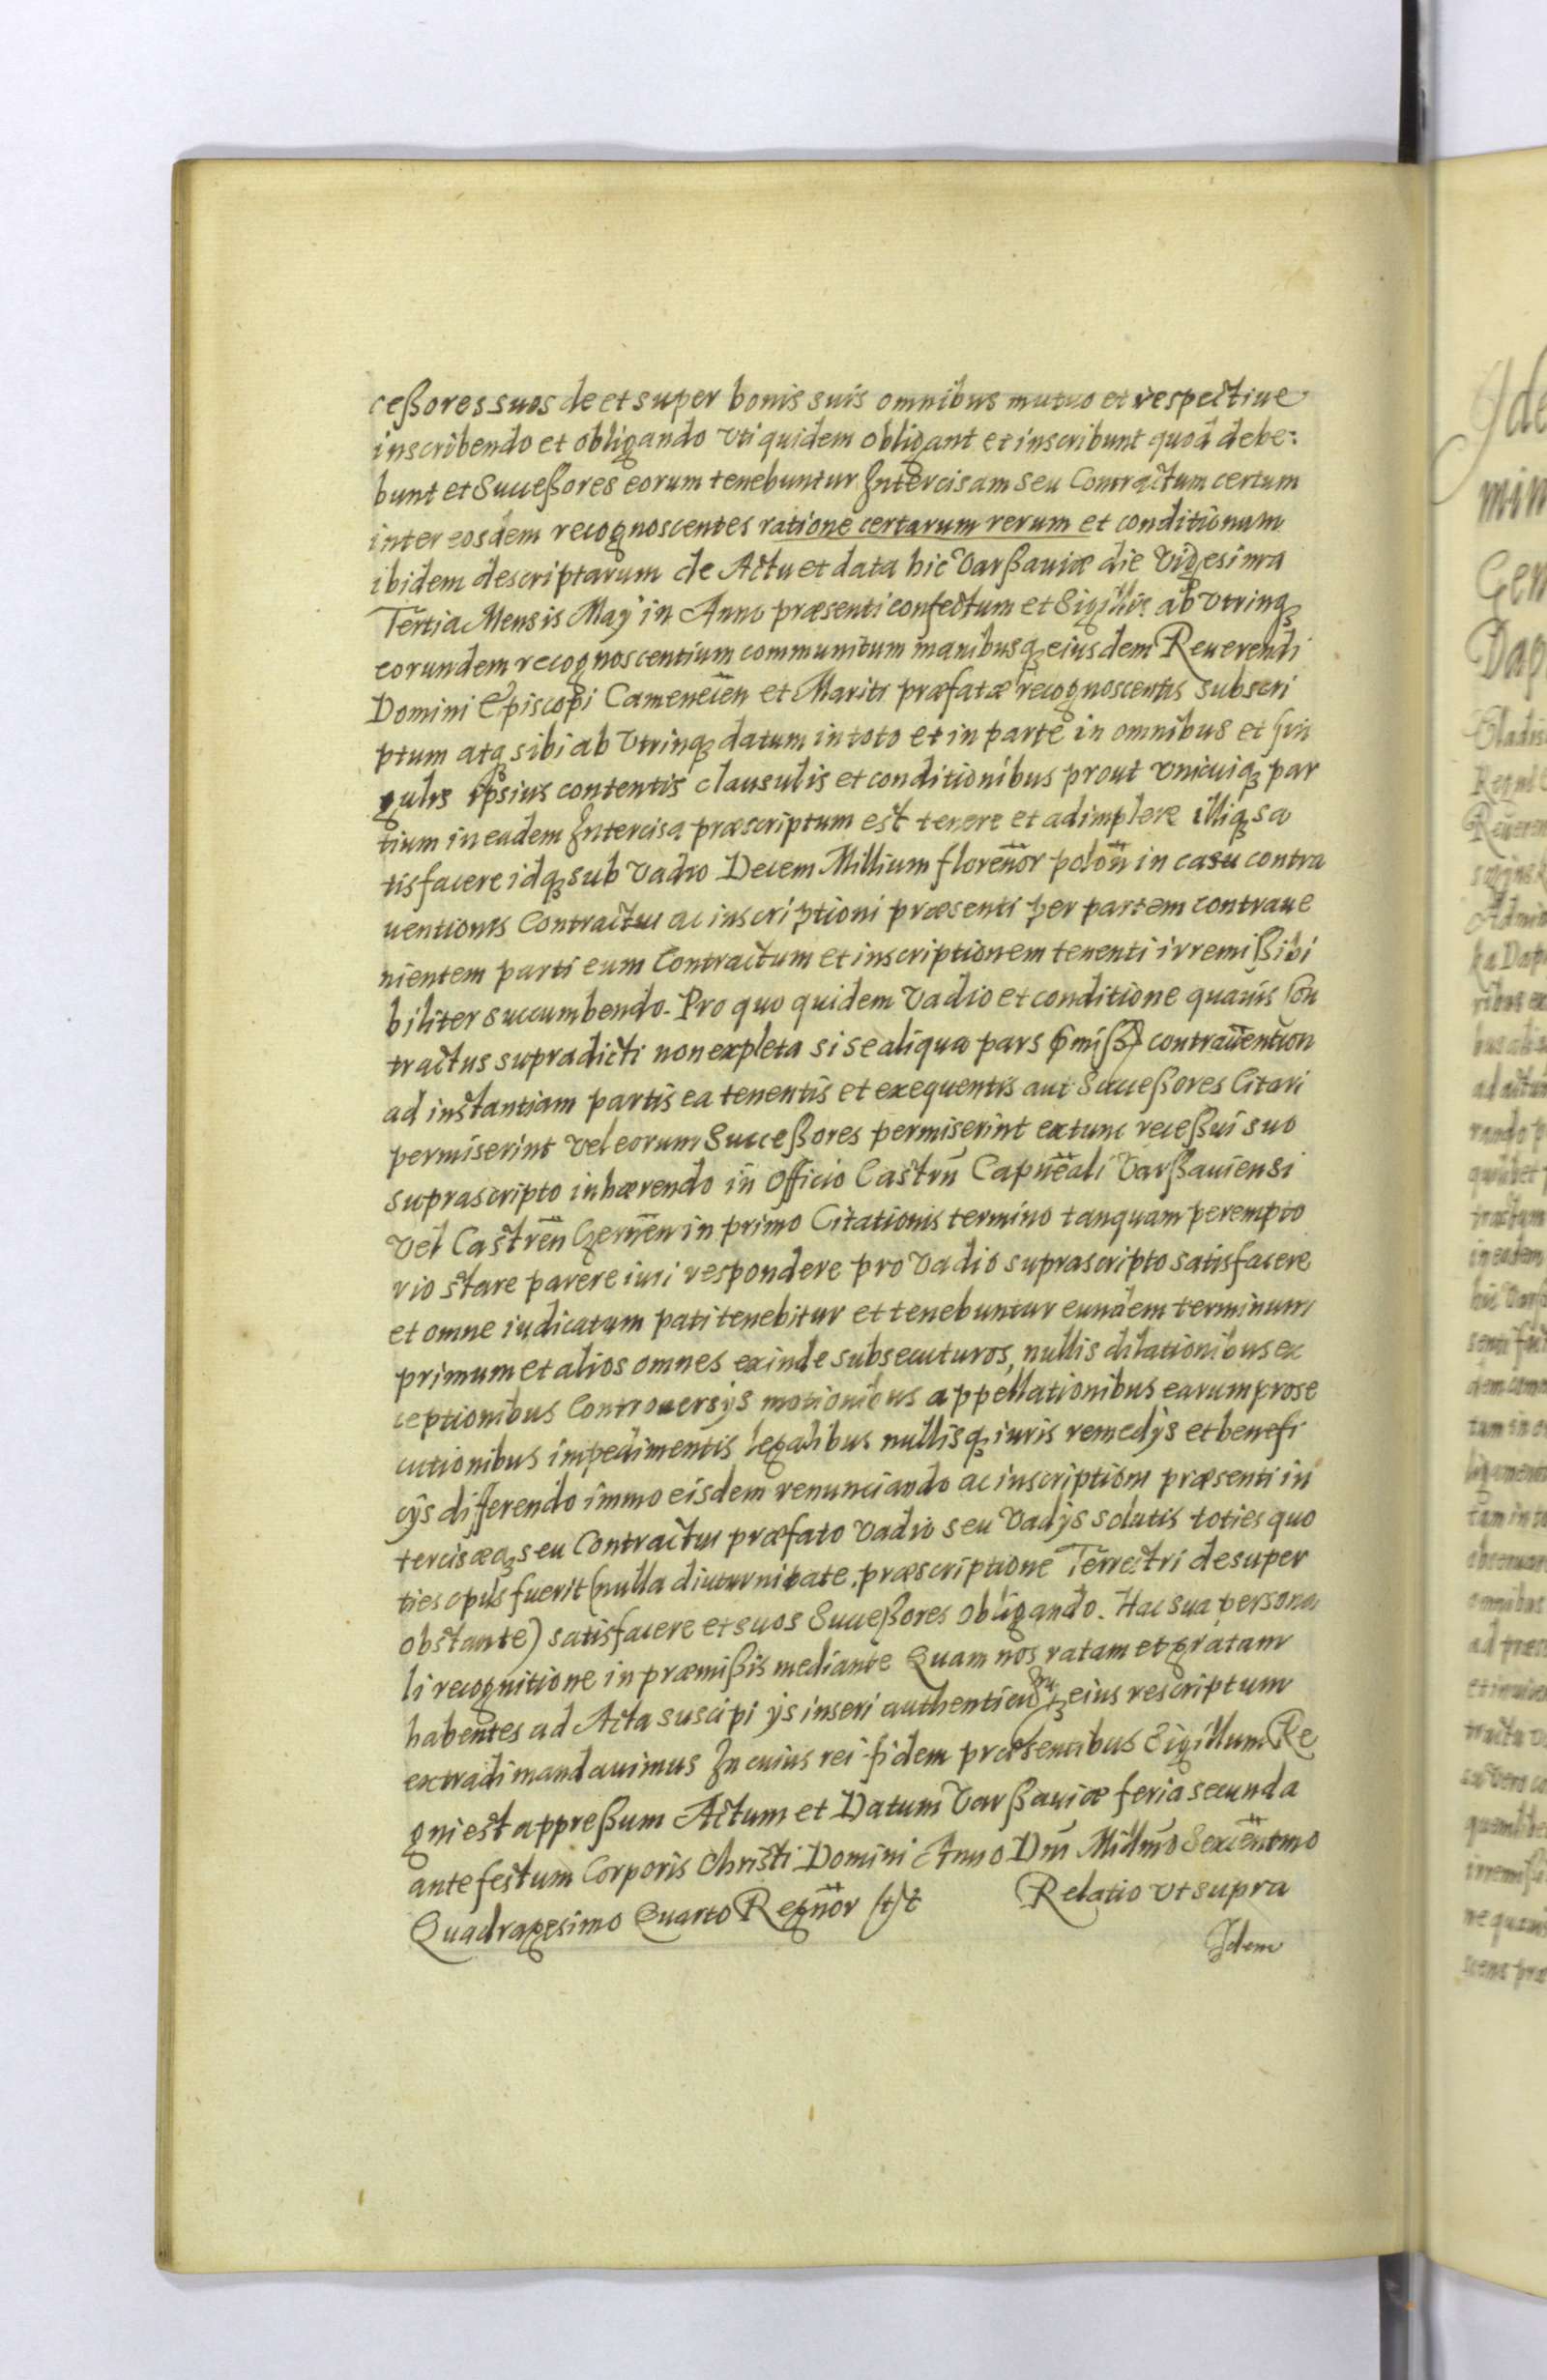 ceßores suos de et super bonis suis omnibus mutuo et respectiue
inscribendo et obligando vti quidem obligant et inscribunt quod debe:
bunt et Succeßores eorum tenebuntur Intercisam seu Contractum certum
inter eosdem recognoscentes ratione certarum rerum et conditionum
ibidem descriptarum de Actu et data hic Varßauiæ die Vigesima
Tertia Mensis Maÿ in Anno præsenti confectum et Sigillis ab vtrinq3
eorundem recognoscentium communitum manibusq3 eiusdem Reuerendi
Domini Episcopi Camenecen̄ et Mariti præfatæ recognoscentis subscri
ptum atq3 sibi ab vtrinq3 datum in toto et in parte in omnibus et sin
gulis ipsius contentis clausulis et conditionibus prout vnicuiq3 par
tium in eadem Intercisa præscriptum est tenere et adimplere illiq3 sa
tisfacere idq3 sub vadio Decem Millium floren̄or polon̄ in casu contra
uentionis Contractus ac inscriptioni præsenti per partem contraue
nientem parti eum Contractum et inscriptionem tenenti irremißibi
biliter succumbendo. Pro quo quidem vadio et conditione quauis Con
tractus supradicti non expleta si se aliqua pars contrauention
ad instantiam partis ea tenentis et exequentis aut Succeßores Citari
permiserint vel eorum Succeßores permiserint extunc receßui suo
suprascripto inhærendo in Officio Castrn̄ Capn̄eali Varßauiensi
vel Castren̄ Czernen̄ in primo Citationis termino tanquam perempto
rio stare parere iuri respondere pro vadio suprascripto satisfacere
et omne iudicatum pati tenebitur et tenebuntur eundem terminum
primum et alios omnes exinde subsecuturos, nullis dilationibus ex
ceptionibus Controuersÿs motionibus appellationibus earum prose
cutionibus impedimentis legalibus nullisq3 iuris remedÿs et benefi
cÿs differendo immo eisdem renunciando ac inscriptioni præsenti in
tercisæq3 seu Contractui præfato vadio seu Vadÿs solutis toties quo
ties opus fuerit (nulla diuturnitate, præscriptione Terrestri desuper
obstante) satisfacere et suos Succeßores obligando. Hac sua persona
li recognitione in præmißis mediante Quam nos ratam et gratam
habentes ad Acta suscipi ÿs inseri eius rescriptum
extradi mandauimus In cuius rei fidem præsentibus Sigillum Re
gni est appreßum Actum et Datum Varßauiæ feria secunda
ante festum Corporis Christi Domini Anno Dn̄i Millm̄o Sexcen̄tmo
Quadragesimo Quarto Regn̄or
Relatio vt supra
Idem